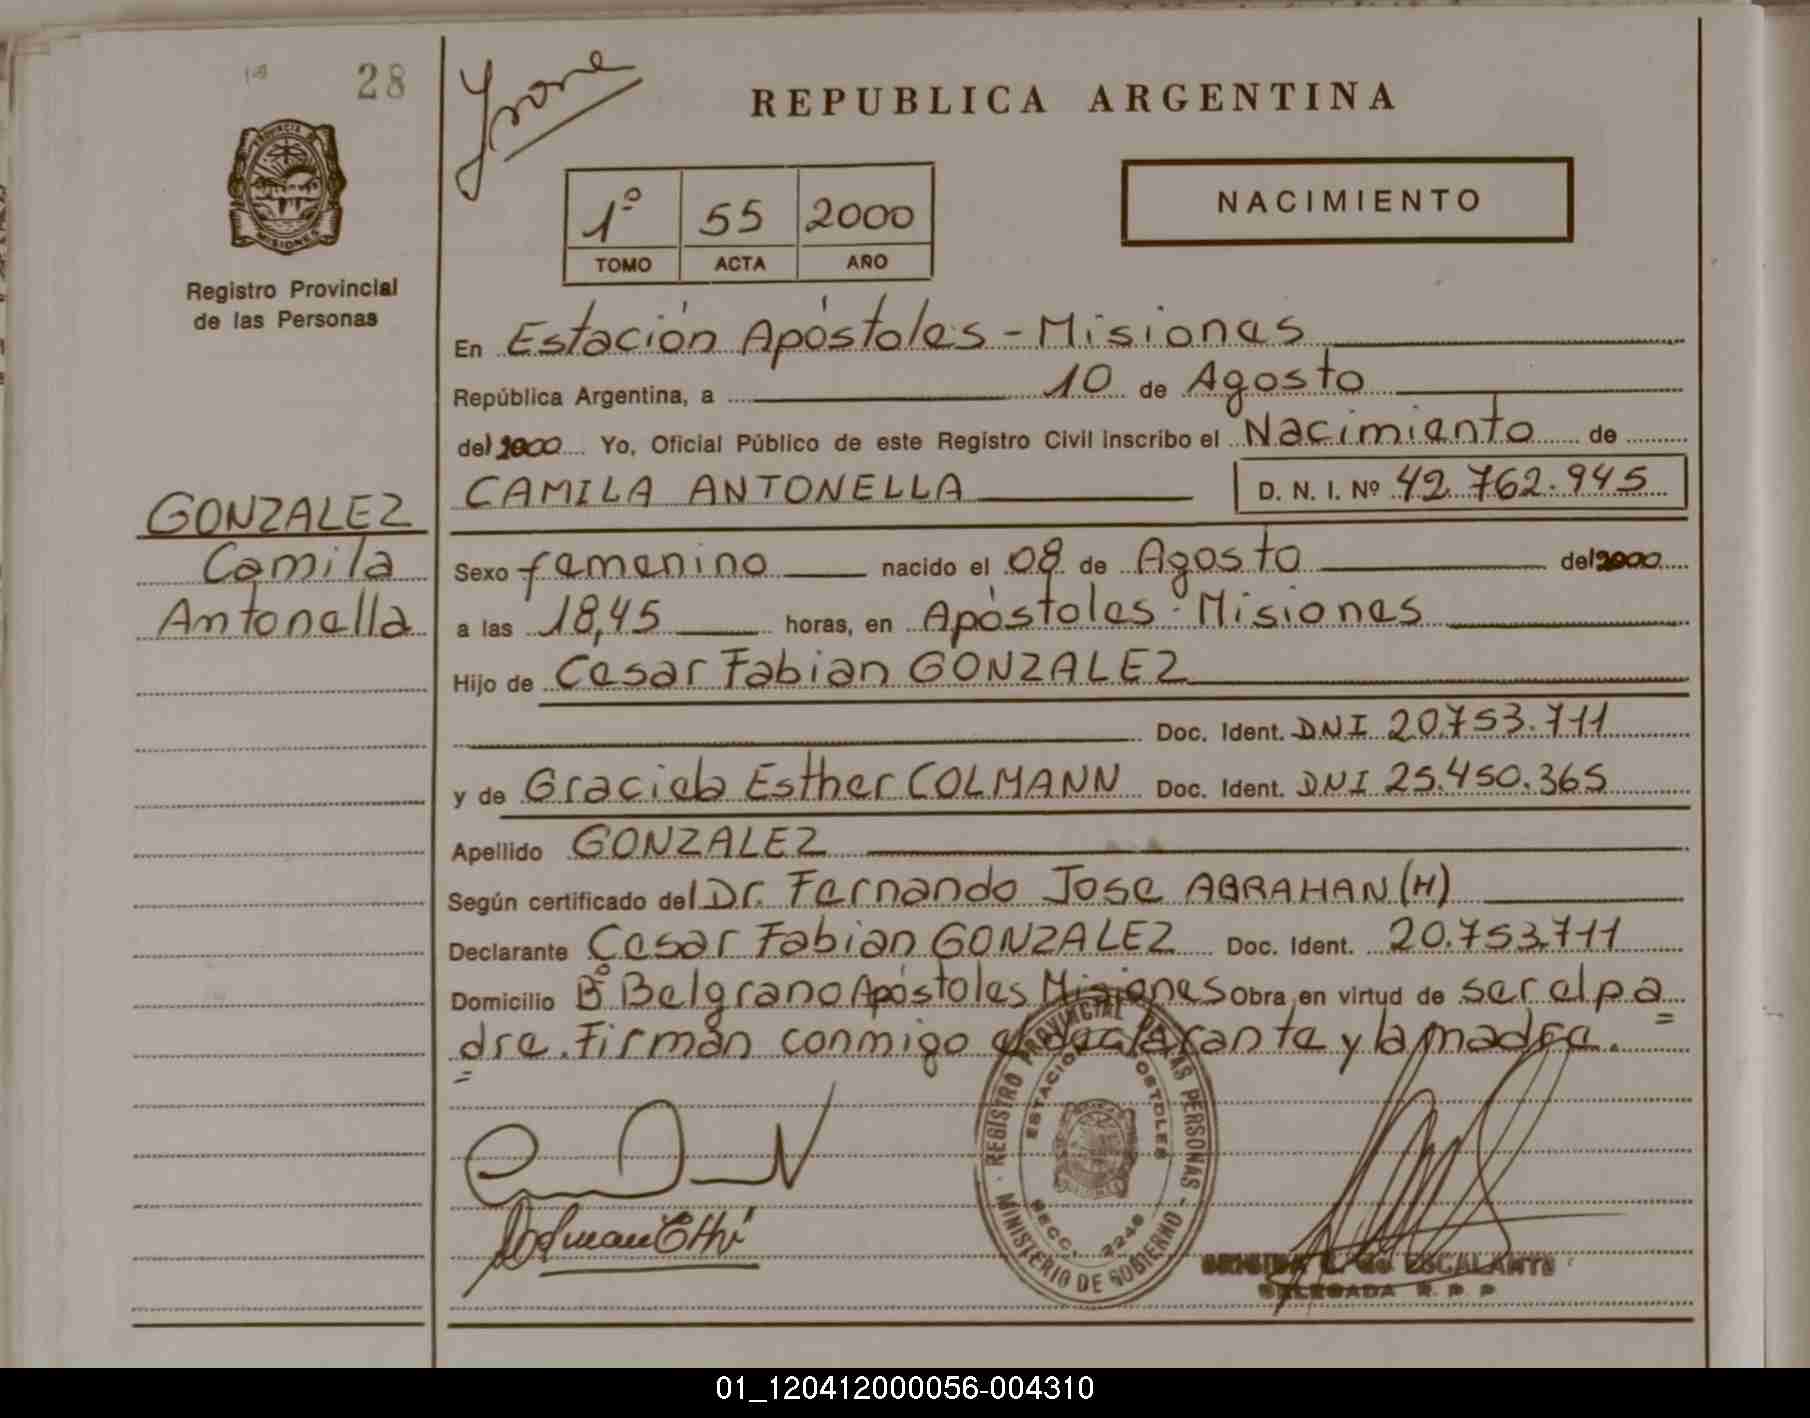 28
Registro Provincial
de las Personas
REPUBLICA ARGENTINA
1º 55 2000
TOMO ACTA AÑO
NACIMIENTO
En Estación Apóstoles - Misiones
República Argentina, a 10 de Agosto
del 2000 Yo, Oficial Público de este Registro Civil inscribo el Nacimiento de
CAMILA ANTONELLA D. N. I. Nº 42.762.945
GONZALEZ
Camila
Antonella
Sexo femenino nacido el 08 de Agosto del 2000
a las 18,45 horas, en Apóstoles - Misiones
Hijo de Cesar Fabian GONZALEZ
Doc. Ident. DNI 20.753.711
y de Graciela Esther COLMANN Doc. Ident. DNI 25.450.365
Apellido GONZALEZ
Según certificado del Dr. Fernando Jose ABRAHAN (H)
Declarante Cesar Fabian GONZALEZ Doc. Ident. 20.753.711
Domicilio Bº Belgrano Apóstoles Misiones Obra en virtud de ser el pa
dre. Firman conmigo el declarante y la madre.
REGISTRO PROVINCIAL DE LAS PERSONAS
MINISTERIO DE GOBIERNO
ESTACION APOSTOLES
SECC. 2246
DE ESCALANTE
DELEGADA R. P. P.
01_120412000056-004310